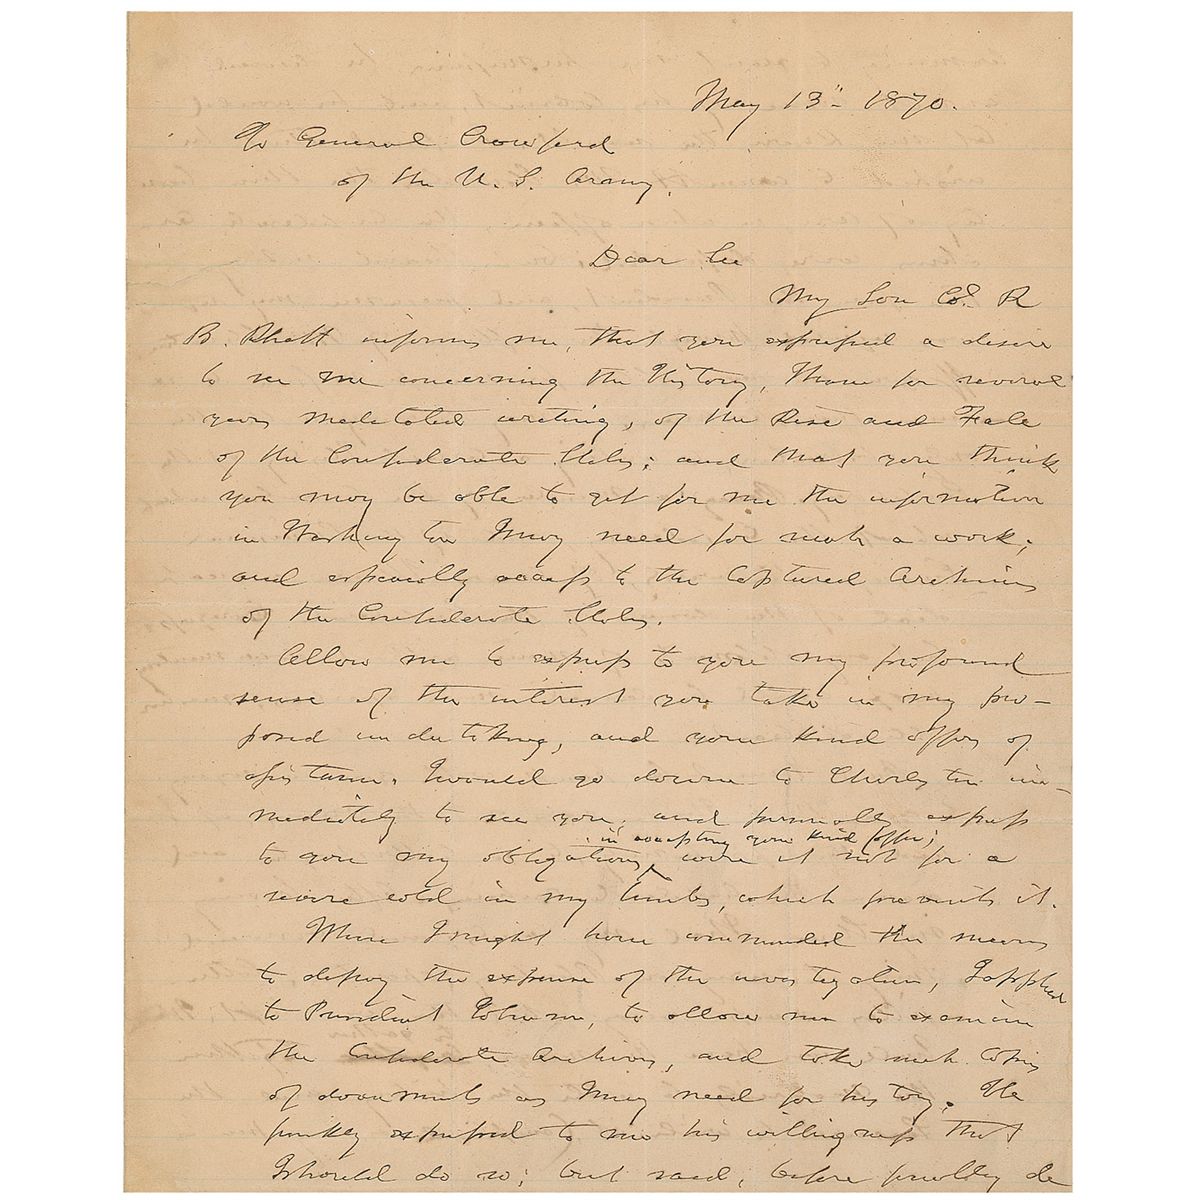 May 13th 1870.
To General Crawford
of the U. S. Army.
Dear Sir
My Son Col. R
B. Rhett informs me, that you expressed a desire
to see me concerning the History, I have for several
years meditated writing, of the Rise and Fall
of the Confederate States; and that you think
you may be able to get for me the information
in Washington I may need for such a work;
and especially access to the Captured Archives
of the Confederate States.
Allow me to express to you my profound
sense of the interest you take in my pro-
posed undertaking, and your kind offers of
assistance. I would go down to Charleston im-
mediately to see you, and personally express
in accepting your kind offer;
to you my obligations, were it not for a
severe cold in my limbs, which prevents it.
When I might have commanded the means
to defray the expense of the investigation, I applied
to President Johnson, to allow me to examine
the Confederate Archives, and take such Copies
of documents as I may need for history. He
frankly expressed to me his willingness that
I should do so; but said, before finally de